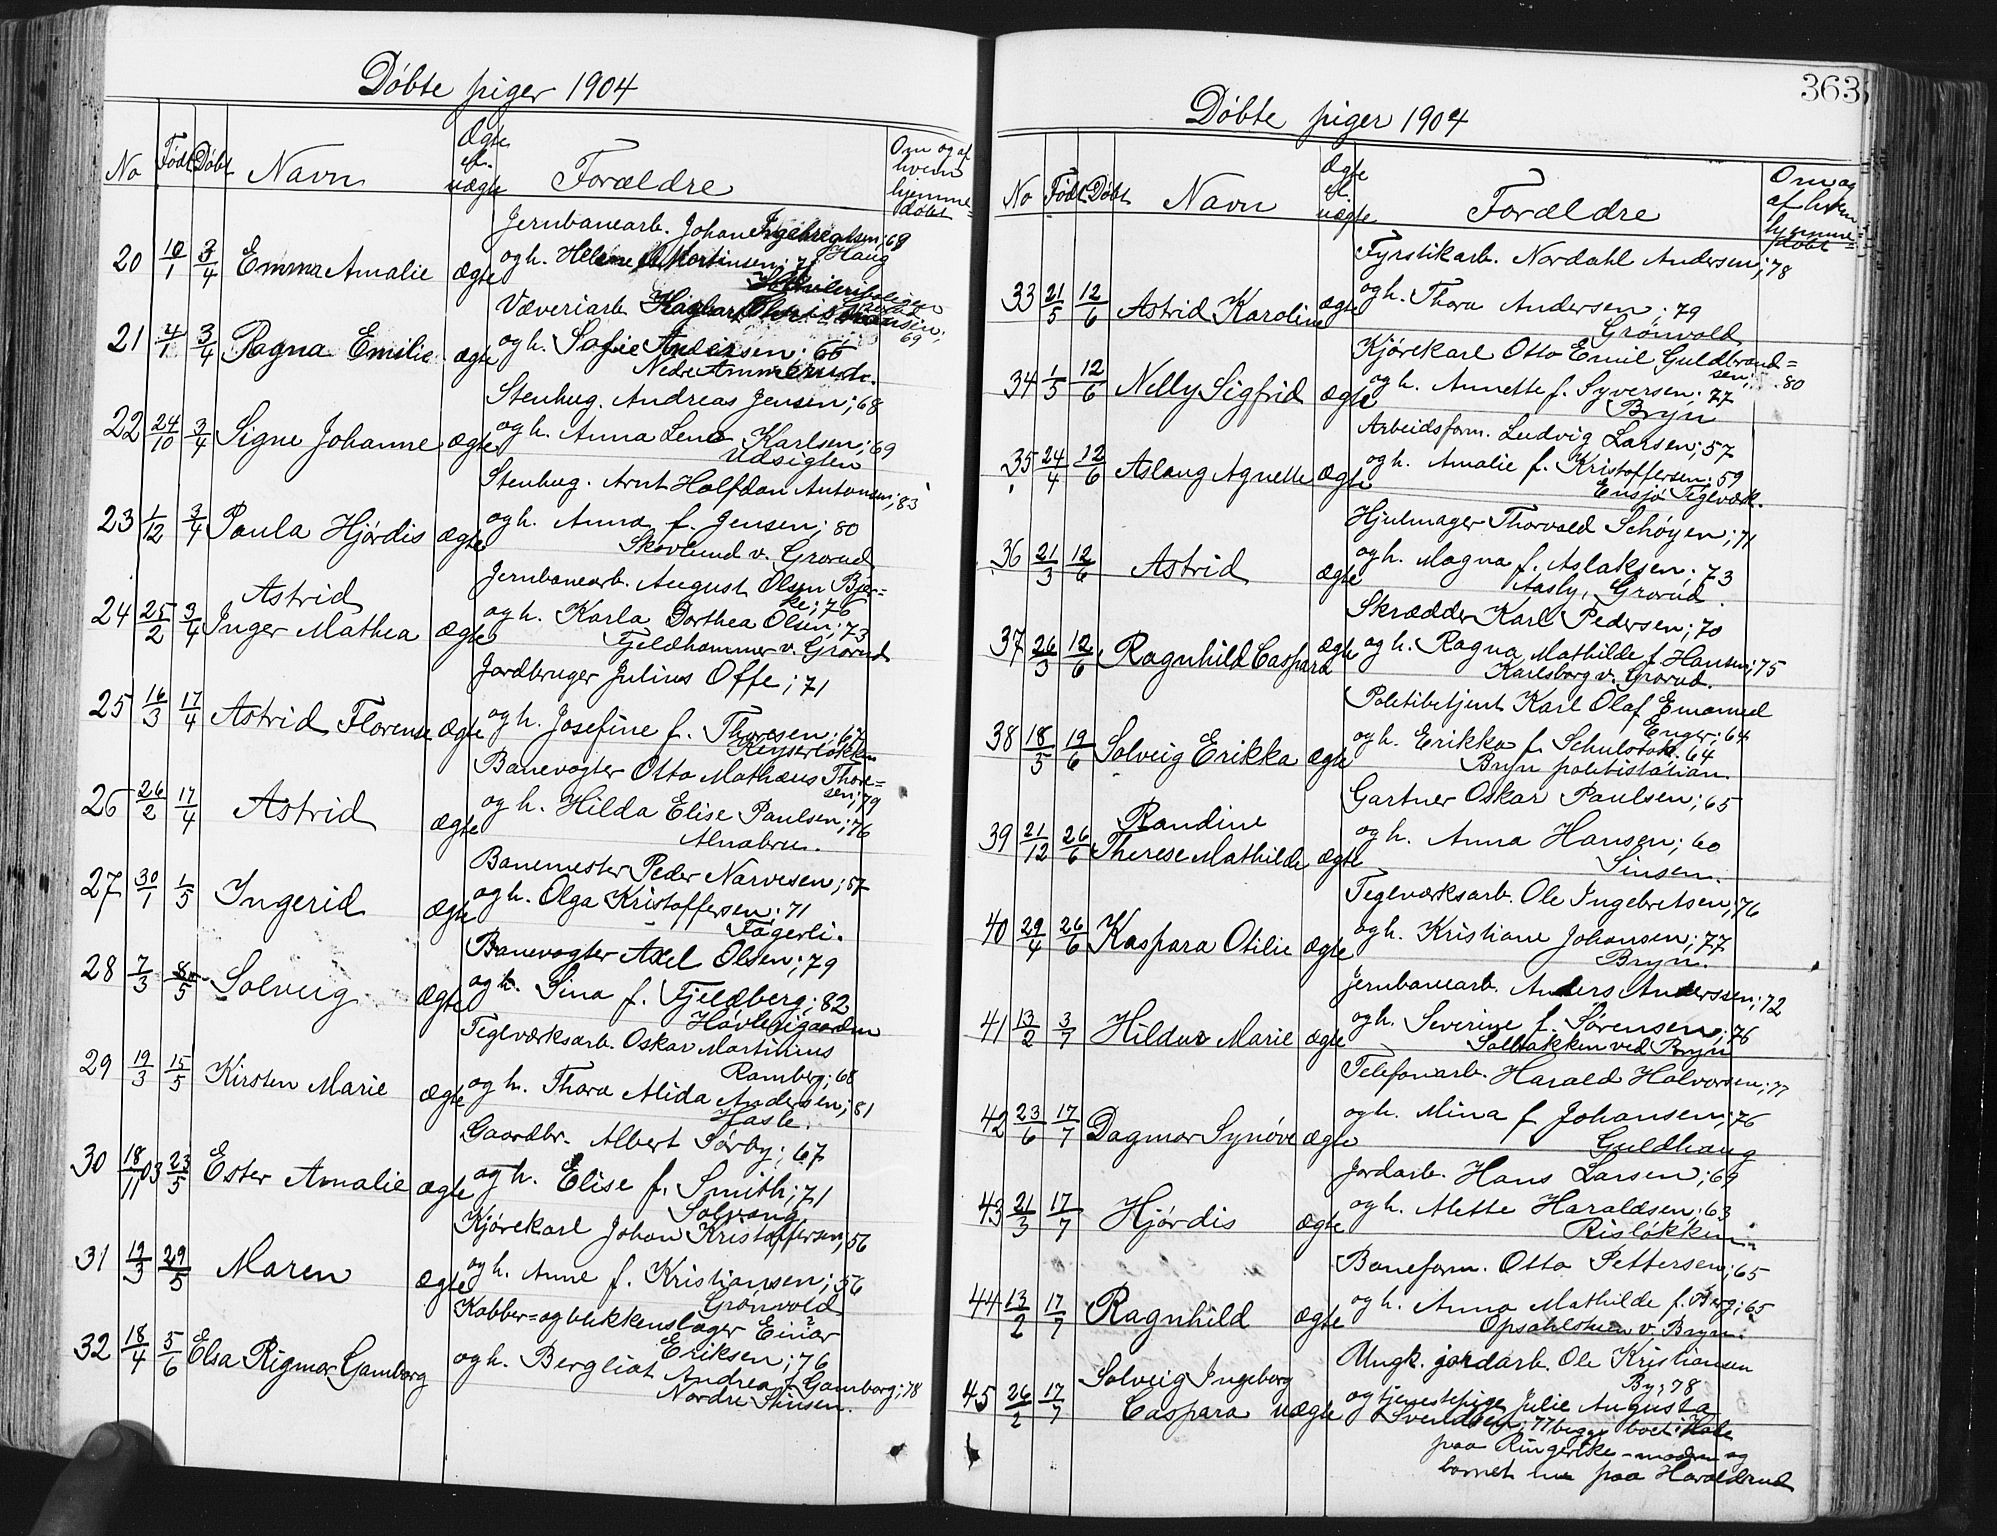 Døbte piger 1904
No Født Døbt Navn Ægte el. uægte Forældre Om og af hvem hjemme=døbt
Jernbanearb. Johan Ingebregtsen; 69
Haug
20 10/1 3/4 Emma Amalie ægte og h. Helene Mortinsen; 71
Væveriarb.
69
21 4/1 3/4 Ragna Emilie ægte og h. Sofie Andersen; 66
Nedre Ammerud.
Stenhug. Andreas Jensen; 68
22 24/10 3/4 Signe Johanne ægte og h. Anna Lena Karlsen; 69
Udsigten
Stenhug. Arnt Halfdan Antonsen; 83
23 1/12 3/4 Paula Hjørdis ægte og h. Anna f. Jensen; 80
Skovlund v. Grorud
Jernbanearb. August Olsen Bjer=
ke; 76
24 25/2 3/4 Astrid
Inger Mathea ægte og h. Karla Dorthea Olsen; 73
Fjeldhammer v. Grorud
Jordbruger Julius Offe; 71
25 16/3 17/4 Astrid Florense ægte og h. Josefine f. Thoresen; 67
Keyserløkken
Banevogter Otto Mathæus Thore=
sen; 79
26 26/2 17/4 Astrid ægte og h. Hilda Elise Paulsen; 76
Alnabru.
Banemester Peder Narvesen; 57
27 30/1 1/5 Ingerid ægte og h. Olga Kristoffersen; 71
Fagerli.
Banevogter Axel Olsen; 79
28 7/3 8/5 Solveig ægte og h. Sina f. Fjeldberg; 82
Høvlerigaarden
Teglværksarb. Oskar Martinius
Ramberg; 68
29 19/3 15/5 Kirsten Marie ægte og h. Thora Alida Andersen; 81
Hasle.
Gaardbr. Albert Sørby; 67
30 18/11 03 23/5 Ester Amalie ægte og h. Elise f. Smith; 71
Solvang
Kjørekarl Johan Kristoffersen; 56
31 19/3 29/5 Maren ægte og h. Anne f. Kristiansen; 56
Grønvold
Kobber= og blikkenslager Einar
Eriksen; 76
32 18/4 5/6 Elsa Rigmor Gamborg og h. Bergliot Andrea f. Gamborg; 78
Nordre Sinsen.
363
Døbte piger 1904
No Født Døbt Navn Ægte el. uægte Forældre Om og af hvem hjemme=døbt
Fyrstikarb. Nordahl Andersen; 78
33 21/5 12/6 Astrid Karoline ægte og h. Thora Andersen; 79
Grønvold
Kjørekarl Otto Emil Guldbrand=
sen; 80
34 1/5 12/6 Nelly Sigfrid ægte og h. Annette f. Syversen; 77
Bryn
Arbeidsform. Ludvig Larsen; 57
35 24/4 12/6 Aslaug Agnette ægte og h. Amalie f. Kristoffersen; 59
Ensjø Teglværk.
Hjulmager Thorvald Schøyen; 71
36 21/3 12/6 Astrid ægte og h. Magna f. Aslaksen; 73
Aasly, Grorud.
Skrædder Karl Pedersen; 70
37 26/3 12/6 Ragnhild Caspara ægte og h. Ragna Mathilde f. Hansen; 75
Karlsborg v. Grorud.
Politibetjent Karl Olaf Emanuel
Enger; 64
38 18/5 19/6 Solveig Erikka ægte og h. Erikka f. Schulstok; 64
Bryn politistation.
Gartner Oskar Paulsen; 65
39 21/12 26/6 Randine
Therese Mathilde ægte og h. Anna Hansen; 60
Sinsen.
Teglværksarb. Ole Ingebretsen; 76
40 29/4 26/6 Kaspara Otilie ægte og h. Kristiane Johansen; 77
Bryn.
Jernbanearb. Anders Anderssen; 72
41 13/2 3/7 Hildur Marie ægte og h. Severine f. Sørensen; 76
Solbakken ved Bryn
Telefonarb. Harald Halvorsen; 77
42 23/6 17/7 Dagmar Synøve ægte og h. Mina f. Johansen; 76
Guldhaug
Jordarb. Hans Larsen; 69
43 21/3 17/7 Hjørdis ægte og h. Mette Haraldsen; 63
Risløkken
Baneform. Otto Pettersen; 65
44 13/2 17/7 Ragnhild ægte og h. Anna Mathilde f. Berg; 65
Opsahlstuen v. Bryn.
Ungk. jordarb. Ole Kristiansen
By; 78
45 26/2 17/7 Solveig Ingeborg
Caspara uægte og tjenestepige Julie Augusta
Svendsen; 77 begge boet i Hole
paa Ringerike - moderen og
barnet nu paa Haraldsrud